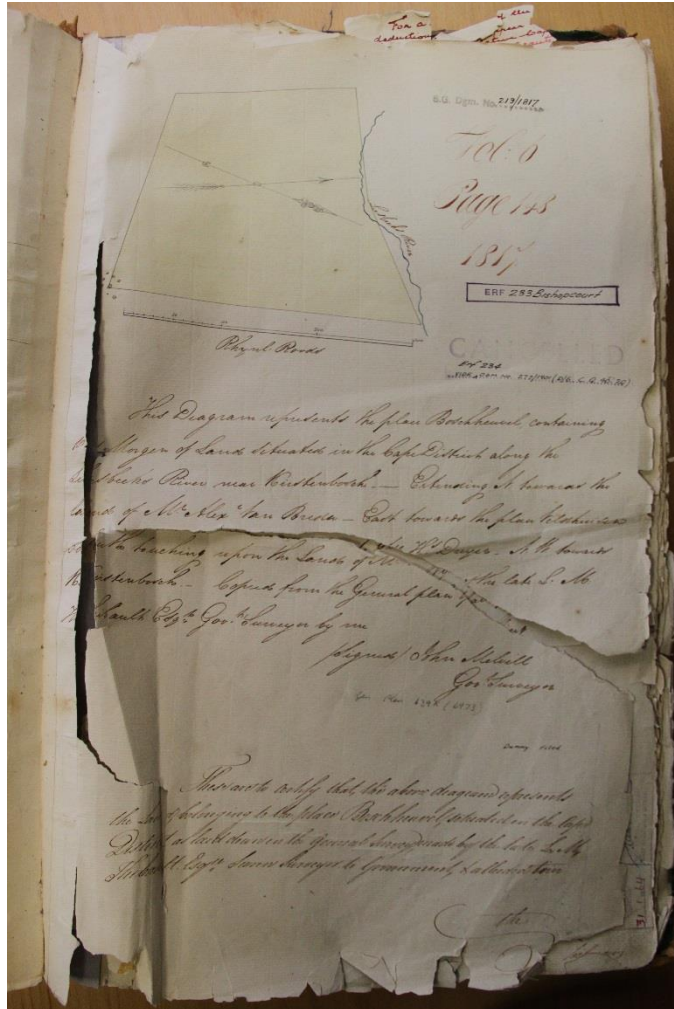 For a
deduction
of the
S.G. Dgm. No. 213/1817
Fol: 6
Page 143
1817
ERF 233 Bishopcourt
CANCELLED
Erf 234
River
Rhynl Roods
This Diagram represents the place Boschheuvel, containing
Morgen of Land situated in the Cape District along the
River near Kirstenbosch — Extending N towards the
Land of Mr. Alex van Breda — East towards the place
South touching upon the Lands of Dreyer — N W towards
Kirstenbosch — Copied from the General plan of the late L. M
Thibault Esqre Govt. Surveyor by me
(signed) John Melvill
Govt. Surveyor
These are to certify that the above diagram represents
the Land belonging to the place Boschheuvel situated in the Cape
District as laid down in the General Survey made by the late L. M.
Thibault Esqre. Sworn Surveyor to Government &